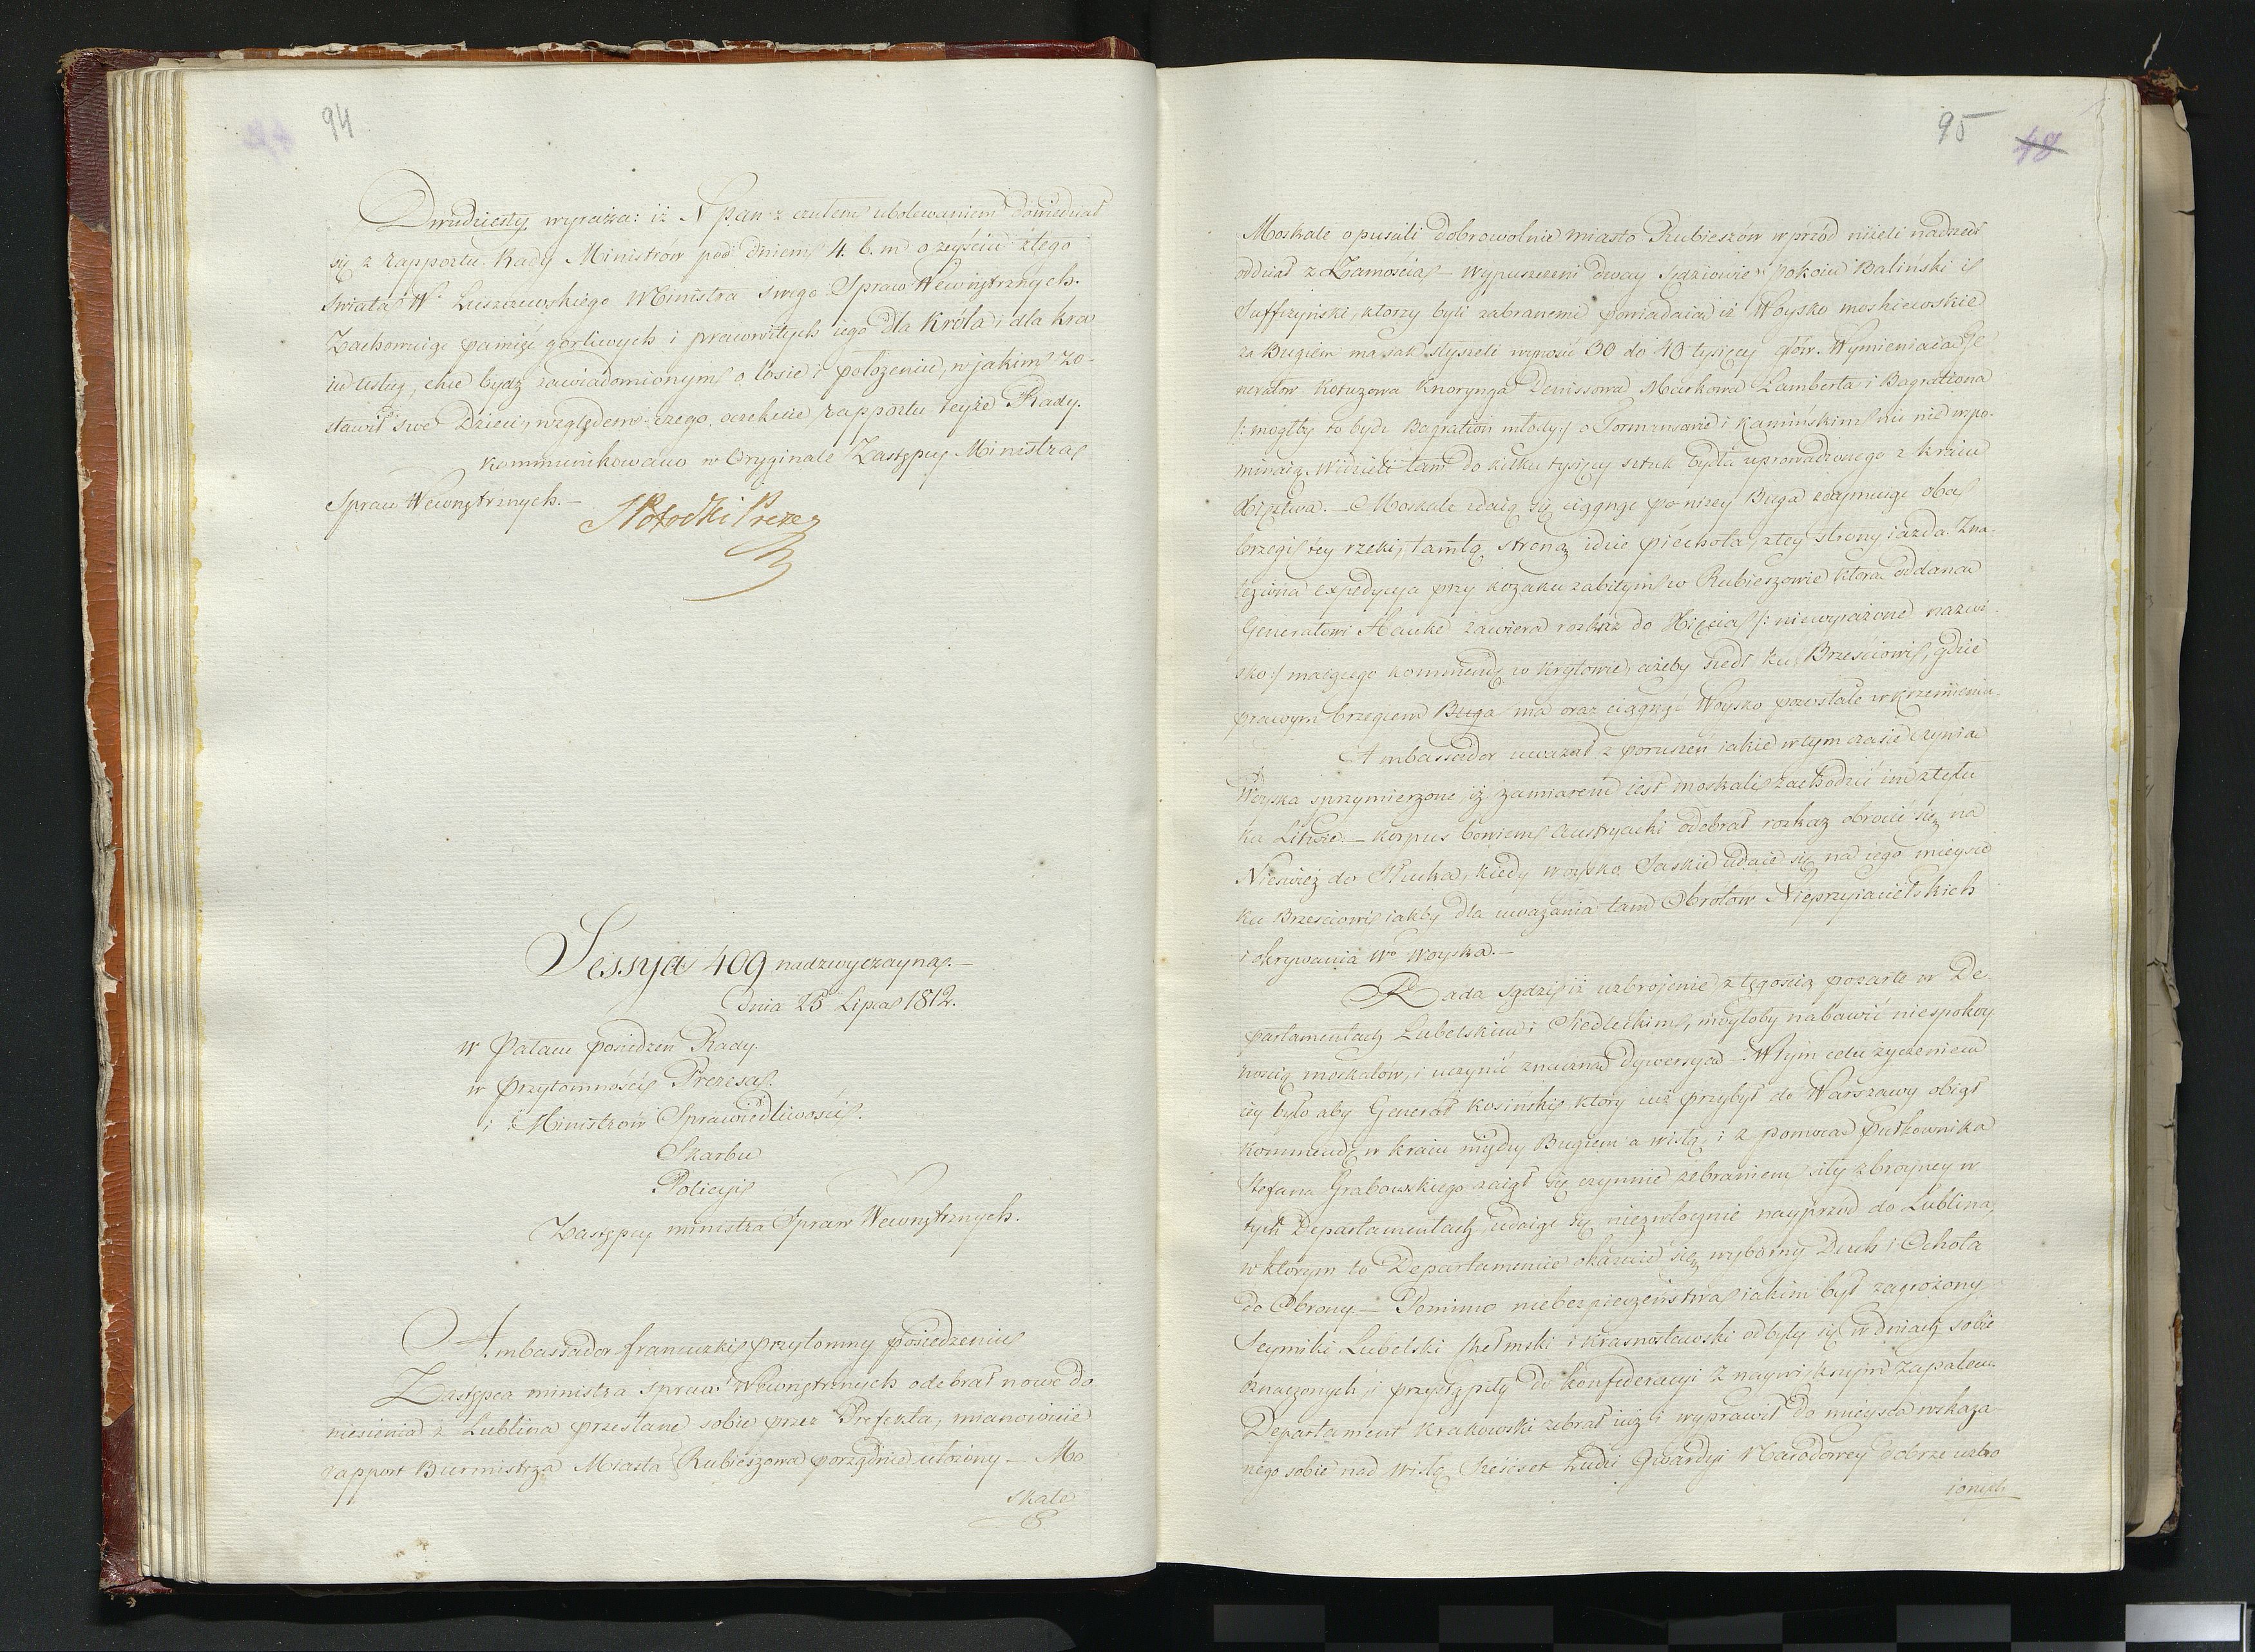 94
Dwudziesty wyraża: iż N Pan z czułem ubolewaniem dowiedział
się z rapportu Rady Ministrów pod dniem 4. b. m. o zeyściu z tego
świata W. Łuszczewskiego Ministra swego Spraw Wewnętrznych.
Zachowuiąc pamięć gorliwych i prawowitych iego dla Króla i dla kra
iu usług, chce bydź zawiadomionym o losie i położeniu, w jakim zo-
stawił swe Dzieci, względem czego oczekuie rapportu teyże Rady.
Kommunikowano w Oryginale Zastępcy Ministra
Spraw Wewnętrznych. —
Potocki Prezes
Sessya 409 nadzwyczayna. —
Dnia 25 Lipca 1812.
w Pałacu posiedzeń Rady.
w Przytomności Prezesa.
i Ministrów Sprawiedliwości.
Skarbu
Policyi
Zastępcy ministra Spraw Wewnętrznych.
Ambassador francuzki przytomny posiedzeniu
Zastępca ministra spraw Wewnętrznych odebrał nowe do
niesienia z Lublina przesłane sobie przez Prefekta, mianowicie
rapport Burmistrza Miasta Rubieszowa porządnie ułożony — Mo
skale
95
48
Moskale opuścili dobrowolnie miasto Rubieszów wprzód niżeli nadszedł
oddział z Zamościa — wypuszczeni dway Sędziowie Pokoiu Baliński i
Suffczyński, ktorzy byli zabranemi powiadaią iż Woysko moskiewskie
za Bugiem ma jak słyszeli wynosić 30 do 40 tysięcy głów. Wymieniaią Je
nerałow Kotuzowa Knorynga Denissowa Markowa Lamberta i Bagrationa
/: mogłby to bydź Bagration młody:/ o Tormansowie i Kamińskim nic nie wspo-
minaią. Widzieli tam do kilku tysięcy sztuk bydła uprowadzonego z kraiu
Xięztwa. — Moskale zdaią się ciągnąc po niżey Buga zaymuiąc oba
brzegi tey rzeki, tamtą stroną idzie piechota, z tey strony iazda. Zna-
leziona expedycya przy kozaku zabitym w Rubieszowie ktora oddana
Generałowi Hauke zawiera rozkaz do Xięcia /: niewyrażone nazwi-
sko:/ maiącego kommendę w Kryłowie, ażeby szedł ku Brzesciowi, gdzie
prawym brzegiem Buga ma oraz ciągnąć Woysko pozostałe w Krzemieńcu.
Ambassador uważał z poruszeń iakie w tym czasie czynią
Woyska sprzymierzone, iż zamiarem iest moskali zachodzić im z tyłu
ku Litwie. — Korpus bowiem Austryacki odebrał rozkaz obrocić się na
Nieświeź do Słucka, kiedy woysko Saskie udaie się na iego mieysce
ku Brzesciowi iakby dla uważania tam Obrotow Nieprzyiacielskich
i okrywania Wo Woyska. —
Rada sądzi iż uzbrojenie z tęgością poparte w De
partamentach Lubelskim i Siedleckim, mogłoby nabawić niespokoy
nością moskalów, i uczynić znaczną dywersyą. W tym celu życzeniem
iey było aby Generał Kosiński, ktory iuż przybył do Warszawy obiął
kommendę w kraiu między Bugiem a Wisłą, i z pomocą Pułkownika
Stefana Grabowskiego zaiął się czynnie zebraniem siły zbroyney w
tych Departamentach, udaiąc się niezwłocznie nayprzód do Lublina,
w ktorym to Departamencie okazuie się wyborny Duch i Ochota
do Obrony. — Pomimo niebezpieczeństwa iakim był zagrożony
Seymiki Lubelski Chełmski i Krasnostawski odbyły się w dniach sobie
oznaczonych, i przystąpiły do konfederacyi z naywiększym zapałem.
Departament Krakowski zebrał iuż i wyprawił do mieysca wskaza
nego sobie nad Wisłą Sześćset Ludzi Gwardyi Narodowey dobrze uzbro
ionych